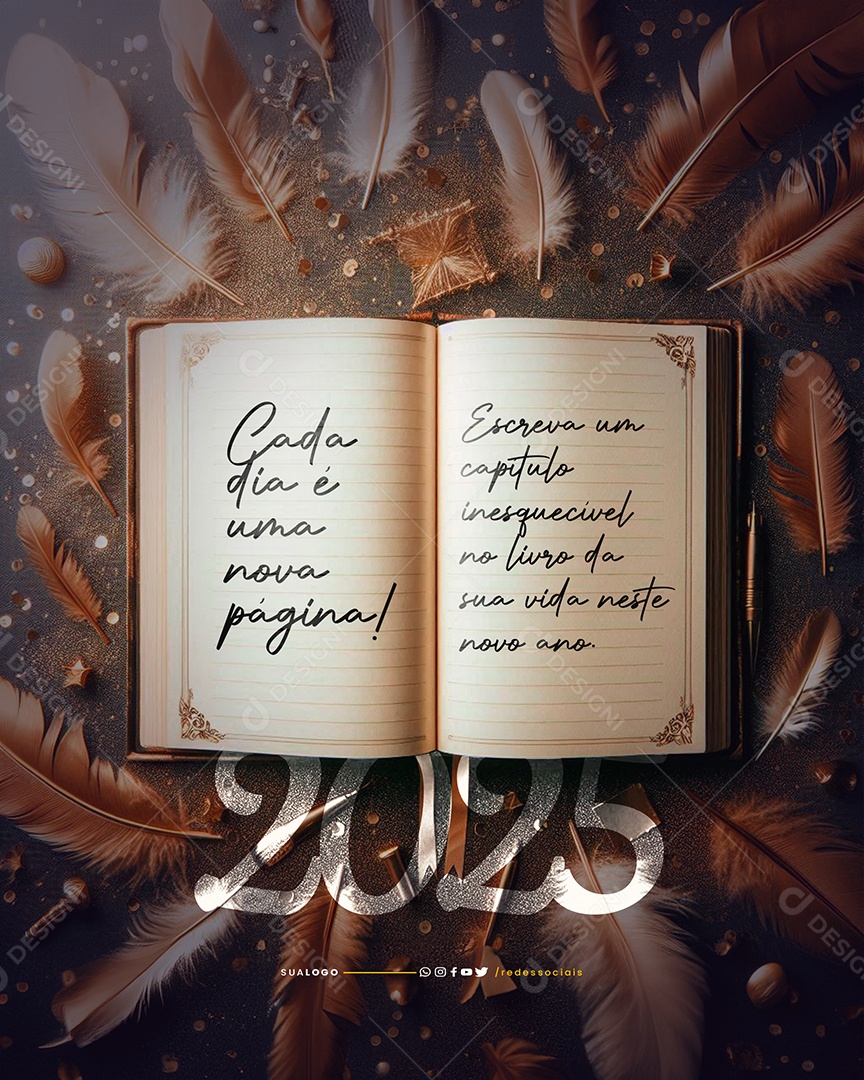 Cada
día é
uma
nova
página!
Escreva um
capítulo
inesquecível
no livro da
sua vida neste
novo ano.
2025
SUALOGO /redessociais
DESIGNI